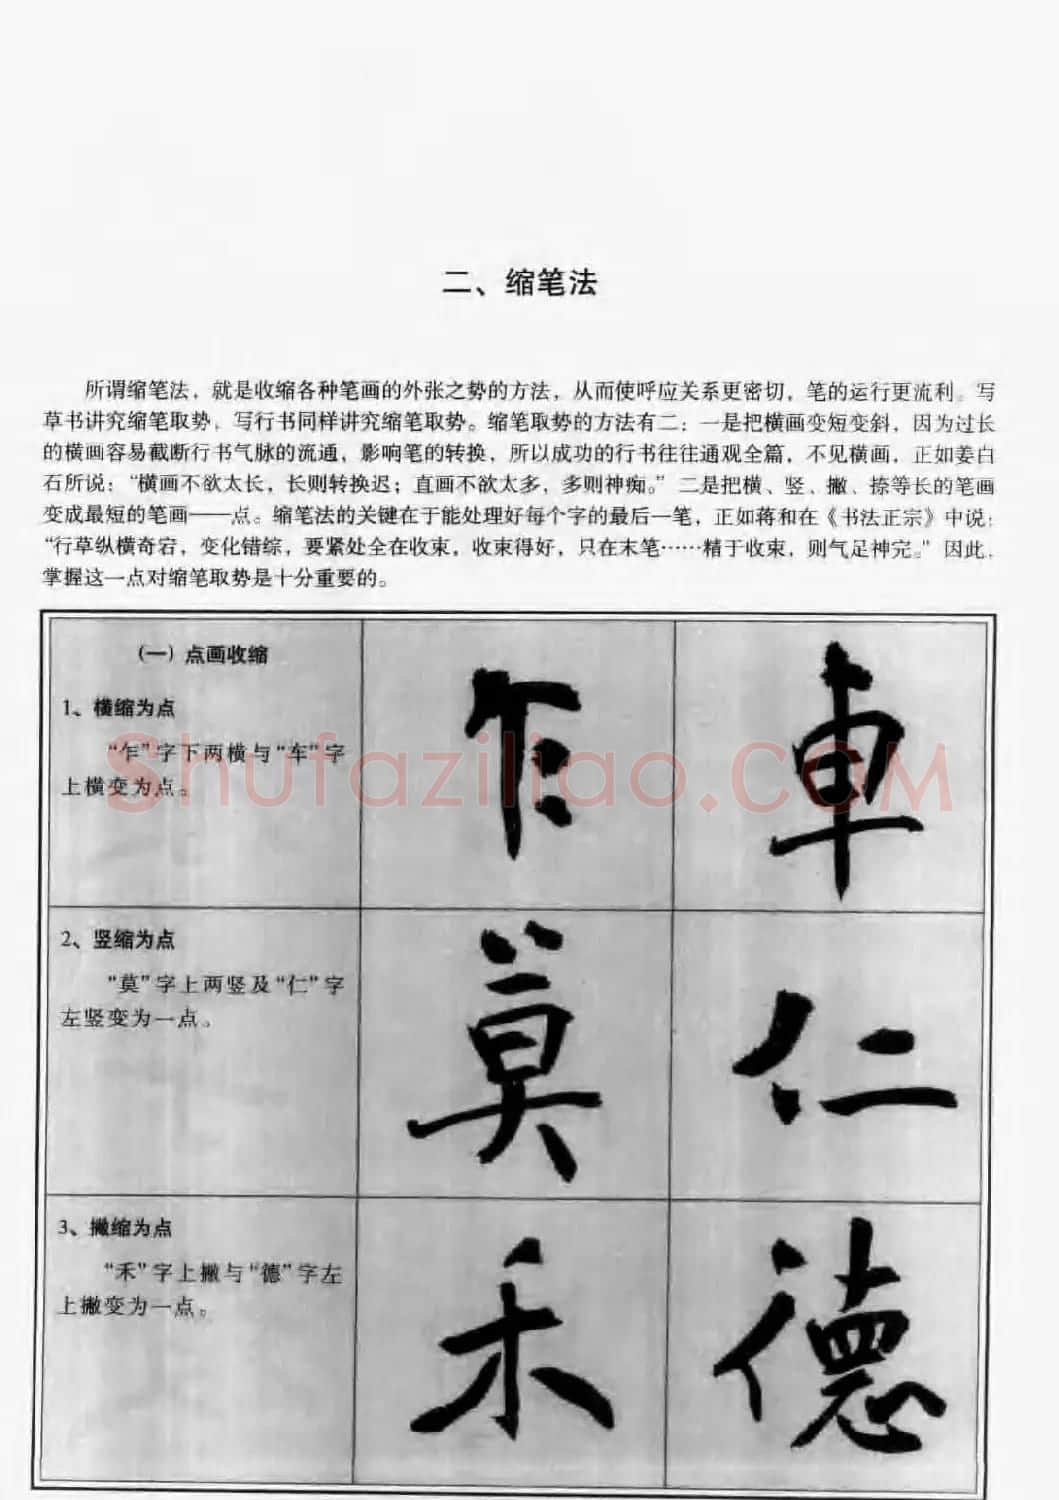 二、缩笔法
所谓缩笔法，就是收缩各种笔画的外张之势的方法，从而使呼应关系更密切，笔的运行更流利。写
草书讲究缩笔取势，写行书同样讲究缩笔取势。缩笔取势的方法有二：一是把横画变短变斜，因为过长
的横画容易截断行书气脉的流通，影响笔的转换，所以成功的行书往往通观全篇，不见横画，正如姜白
石所说：“横画不欲太长，长则转换迟；直画不欲太多，多则神痴。”二是把横、竖、撇、捺等长的笔画
变成最短的笔画——点。缩笔法的关键在于能处理好每个字的最后一笔，正如蒋和在《书法正宗》中说：
“行草纵横奇宕，变化错综，要紧处全在收束，收束得好，只在末笔……精于收束，则气足神完。”因此，
掌握这一点对缩笔取势是十分重要的。
（一）点画收缩
1、横缩为点
“乍”字下两横与“车”字
上横变为点。
乍
車
2、竖缩为点
“莫”字上两竖及“仁”字
左竖变为一点。
莫
仁
3、撇缩为点
“禾”字上撇与“德”字左
上撇变为一点。
禾
德
Shufaziliao.COM